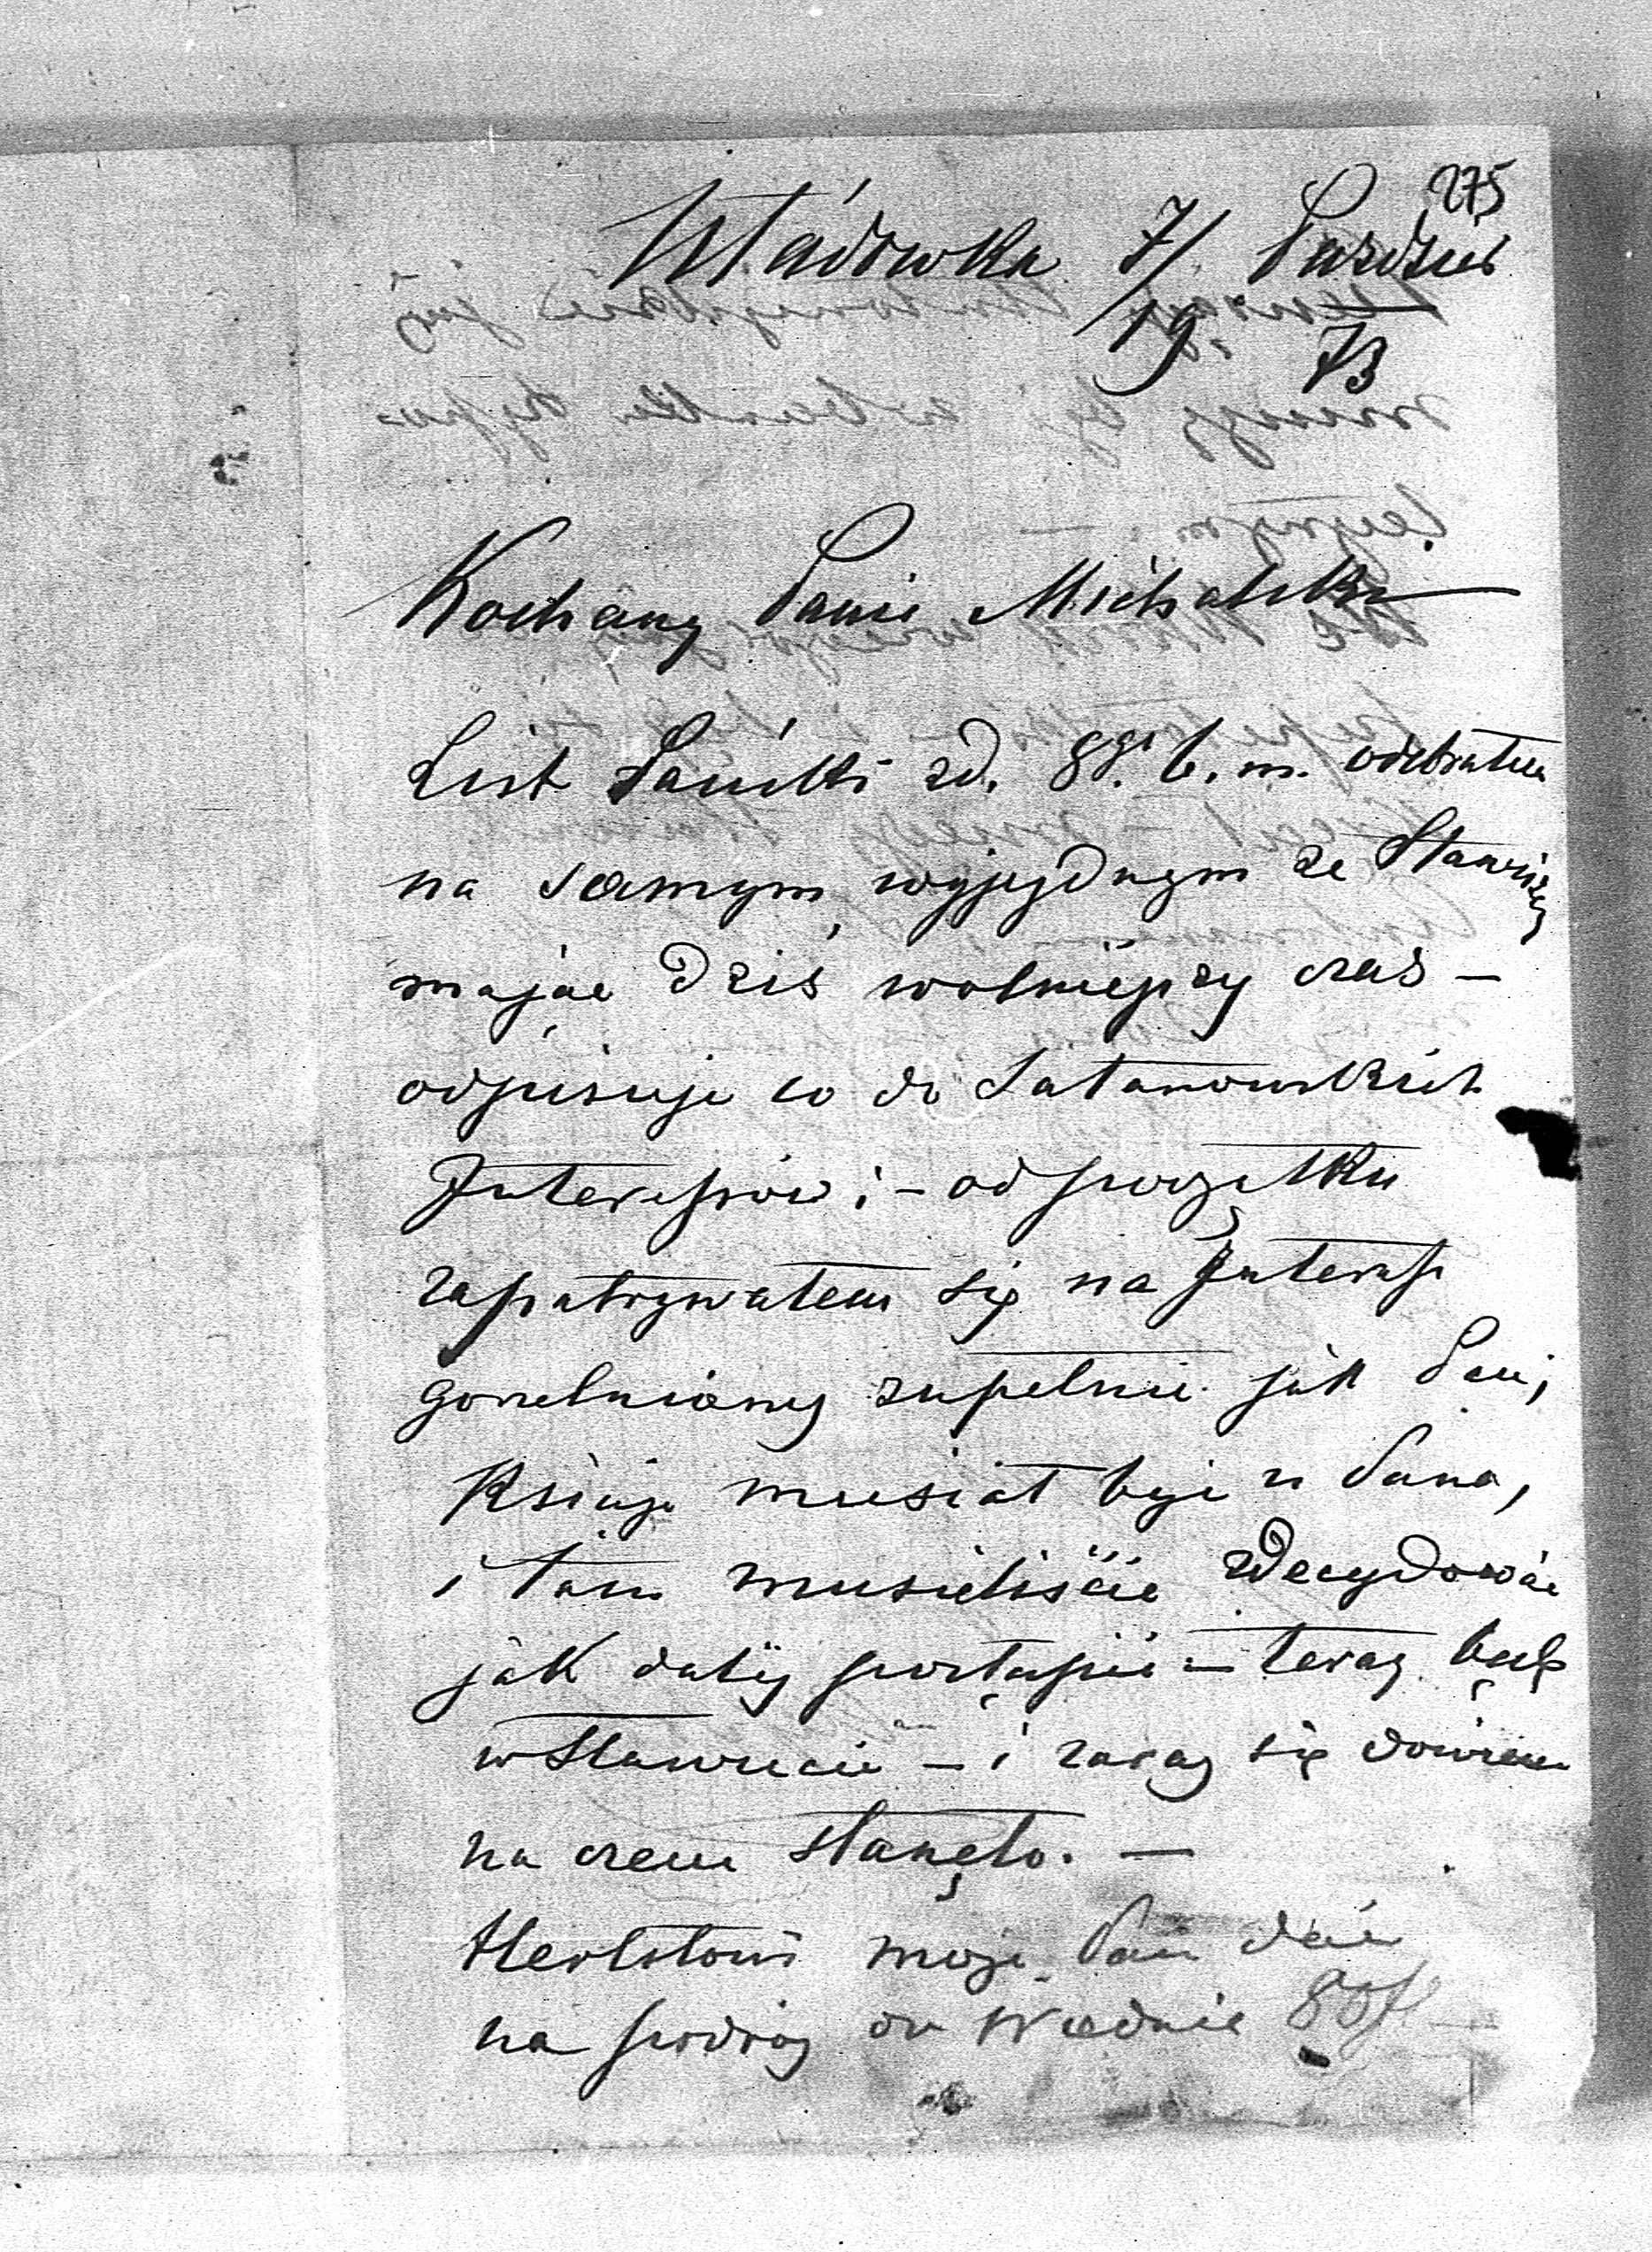 275
7/19 Paźdz 73
Kochany Panie Michale
List Pański zd. 88. b. m. odebrałem
na samym wyjezdnym ze Sławuty
mając dziś wolniejszy czas —
odpisuję co do Satanowskich
Interessów; — od początku
zapatrywałem się na Interess
gorzelniany zupełnie jak Pan;
Książe musiał być u Pana,
i tam musieliście zdecydować
jak dalej postąpić — teraz będę
w Sławucie — i zaraz się dowiem
na czem stanęło. —
może Pan dać
na podróż do Wiednia